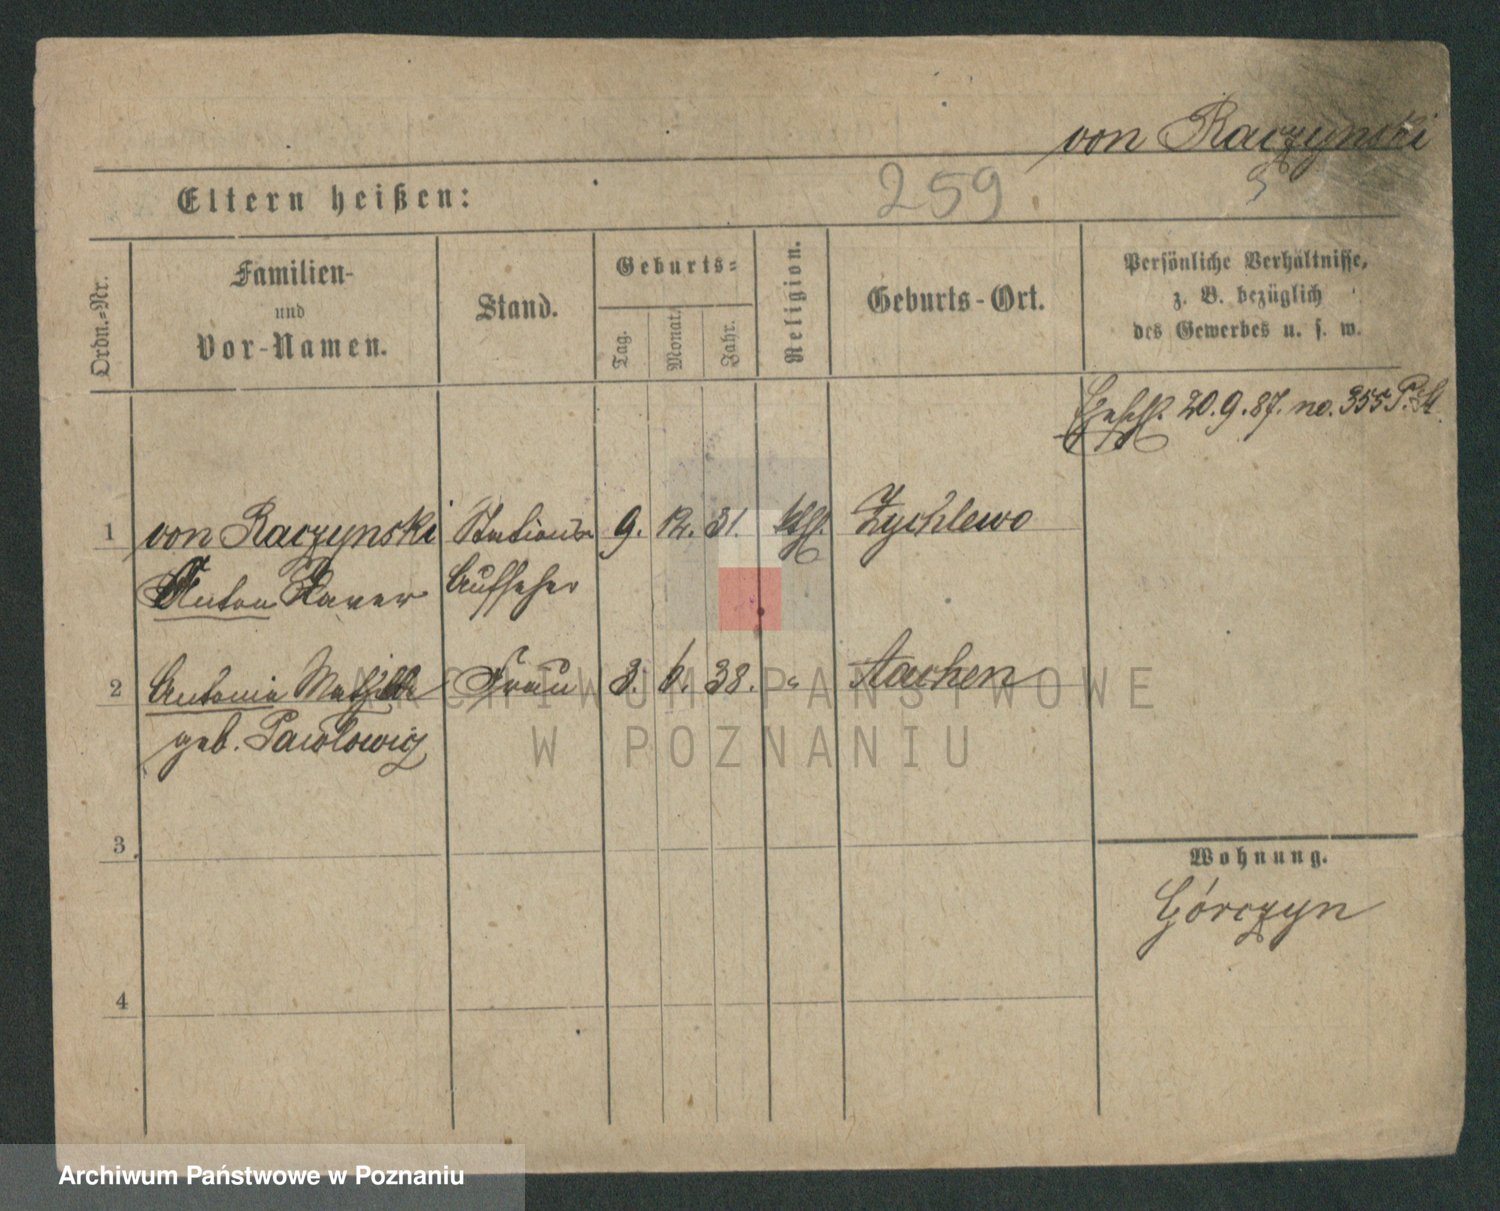 von Raczynski
Eltern heißen:
259
Ordn.-Nr.
Familien-
und
Vor-Namen.
Stand.
Geburts-
Tag.
Monat.
Jahr.
Religion.
Geburts-Ort.
Persönliche Verhältnisse,
z. B. bezüglich
des Gewerbes u. s. w.
20.9.87. no. 355
1 von Raczynski Stations- 9. 12. 31. kth. Zychlewo
Anton Xaver Aufseher
2 Antonie Mathilde Frau 3. 6. 38. " Aachen
geb. Pawlowicz
3
4
Wohnung.
Górczyn
ARCHIWUM PAŃSTWOWE
W POZNANIU
Archiwum Państwowe w Poznaniu